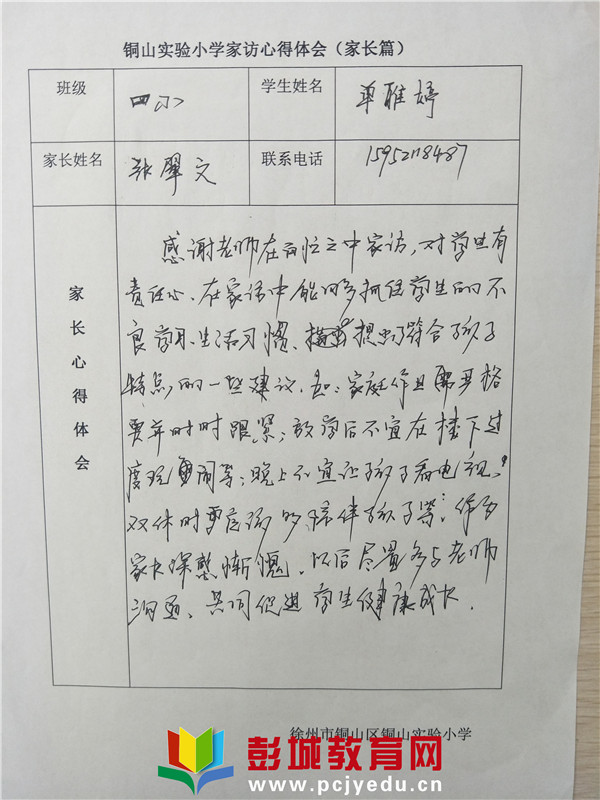 铜山实验小学家访心得体会（家长篇）
班级 四(1) 学生姓名 单雅婷
家长姓名 张翠文 联系电话 15952118487
家长心得体会
感谢老师在百忙之中家访，对学生有
责任心。在家访中能够多抓住学生的不
良学习、生活习惯、提出了符合孩子
特点的一些建议。如：家庭作业严格
要求时时跟紧；放学后不宜在楼下过
度玩闹等；晚上不宜让孩子看电视。
双休时更应该多陪伴孩子等；作为
家长深感惭愧，以后尽量多与老师
沟通、共同促进学生健康成长.
徐州市铜山区铜山实验小学
彭城教育网
www.pcjyedu.cn